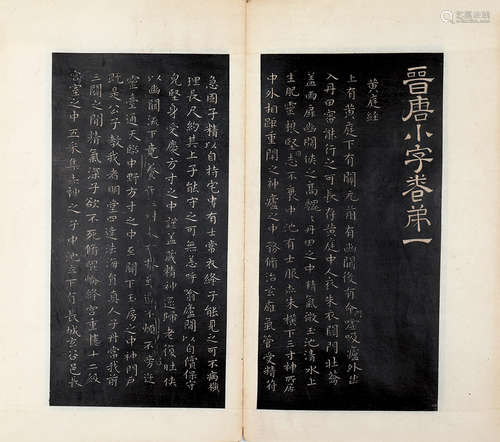 晉唐小字卷弟一
黃庭經
上有黃庭下有關元前有幽闕後有命噓吸廬外出
入丹田審能行之可長存黃庭中人衣朱衣關門壯籥
蓋兩扉幽闕俠之高巍〻丹田之中精氣微玉池清水上
生肥靈根堅志不衰中池有士服赤朱橫下三寸神所居
中外相距重閉之神廬之中務脩治玄廱氣管受精符
急固子精以自持宅中有士常衣絳子能見之可不病橫
理長尺約其上子能守之可無恙呼翕廬間以自償保守
兒堅身受慶方寸之中謹蓋藏精神還歸老復壯俠
以幽闕流下竟養子玉樹不煩不旁迕
靈臺通天臨中野方寸之中至關下玉房之中神門戶
既是公子教我者明堂四達法海員真人子丹當我前
三關之間精氣深子欲不死脩崑崙絳宮重樓十二級
宮室之中五采集赤神之子中池立下有長城玄谷邑長